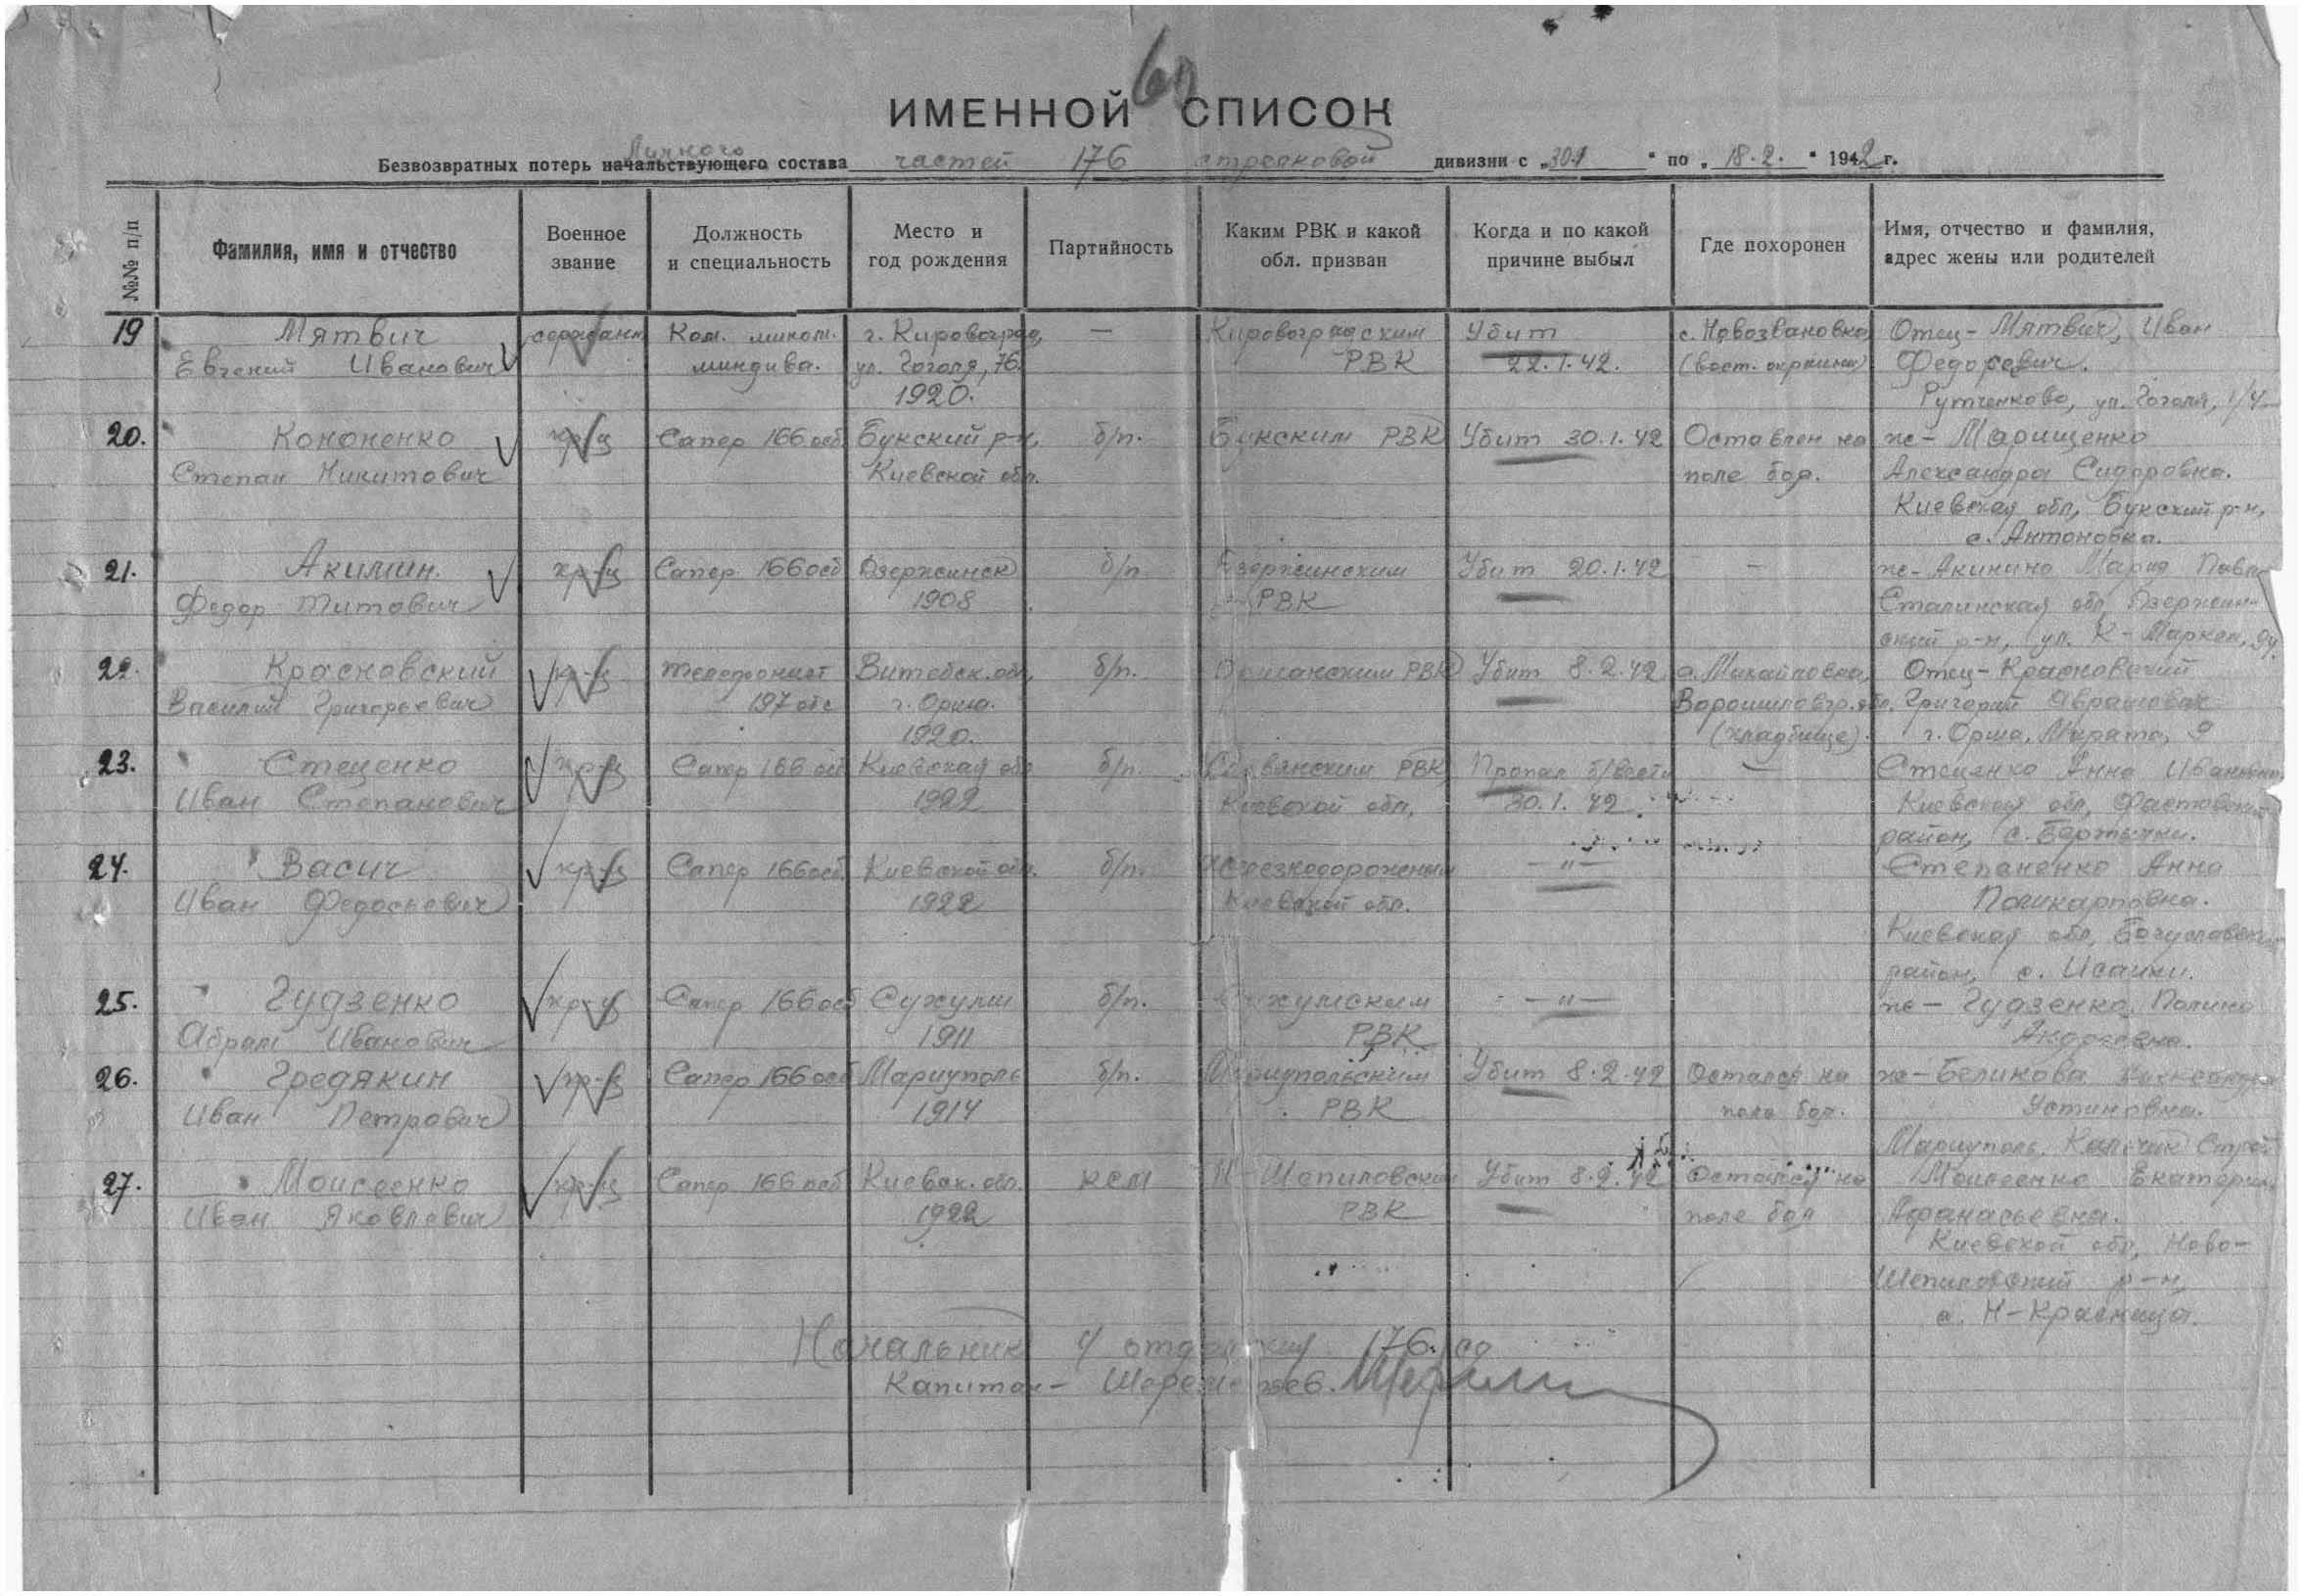 60
ИМЕННОЙ СПИСОК
Личного
Безвозвратных потерь начальствующего состава частей 176 стрелковой дивизии с „30.1 " по „ 18.2. " 1942 г.
№№ п/п
Фамилия, имя и отчество
Военное звание
Должность и специальность
Место и год рождения
Партийность
Каким РВК и какой обл. призван
Когда и по какой причине выбыл
Где похоронен
Имя, отчество и фамилия, адрес жены или родителей
19 Мятвич сержант Ком. мином. г. Кировоград, — Кировоградским Убит с. Новозвановка Отец - Мятвич, Иван
Евгений Иванович миндива. ул. Гоголя, 76. РВК 22.1.42. (вост. окраина) Федорович.
1920. Рутченково, ул. Гоголя, 1/4
20. Кононенко кр-ц Сапер 166 осб Букский р-н, б/п. Букским РВК Убит 30.1.42 Оставлен на ж - Марищенко
Степан Никитович Киевской обл. поле боя. Александра Сидоровна.
Киевская обл, Букский р-н,
с. Антоновка.
21. Акимин. кр-ц Сапер 166 осб Дзержинск б/п Дзержинским Убит 20.1.42 — ж - Акинина Мария Павл
Федор Титович 1908 РВК Сталинская обл, Дзержин-
ский р-н, ул. К-Маркса, 94.
22. Красновский кр-ц Телефонист Витебск. обл, б/п. РВК Убит 8.2.42 с. Михайловка, Отец - Красновский
Василий Григорьевич 197 обс г. Орша. Ворошиловгр. обл. Григорий Абрамович
1920. (кладбище). г. Орша, Марата, 9
23. Стеценко кр-ц Сапер 166 осб Киевская обл б/п. РВК Пропал б/вести — Стеценко Анна Ивановна
Иван Степанович 1922 Киевской обл. 30.1.42. Киевская обл, Фастовский
район, с.
24. Васич кр-ц Сапер 166 осб. Киевской обл. б/п. Железнодорожным — " — Степаненко Анна
Иван Федосеевич 1922 Киевской обл. Поликарповна.
Киевская обл, Богуславский
район, с. Исайки.
25. Гудзенко кр-ц Сапер 166 осб Сухуми б/п. Сухумским — " — ж - Гудзенко Полина
Абрам Иванович 1911 РВК Андреевна.
26. Гредякин кр-ц Сапер 166 осб Мариуполь б/п. Мариупольским Убит 8.2.42 Остался на ж - Беликова Александра
Иван Петрович 1914 РВК поле боя. Устиновна.
Мариуполь.
27. Моисеенко кр-ц Сапер 166 осб Киевск. обл. ксм Н-Шепиловским Убит 8.2.42 Остался на Моисеенко Екатерин
Иван Яковлевич 1922 РВК поле боя Афанасьевна.
Киевской обл, Ново-
Шепиловский р-н,
с. Н-Красница.
Начальник 4 отделения 176. сд
Капитан - Шереметьев.